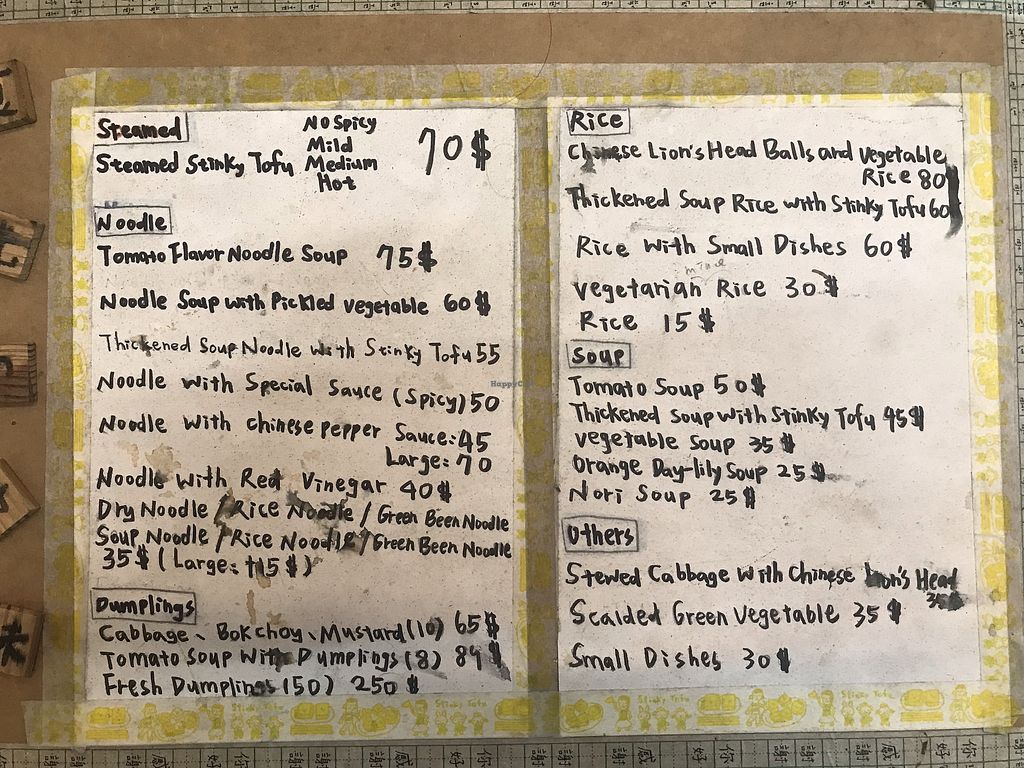 Steamed
Steamed Stinky Tofu
No Spicy
Mild
Medium
Hot
70$
Noodle
Tomato Flavor Noodle Soup 75$
Noodle Soup with Pickled vegetable 60$
Thickened Soup Noodle With Stinky Tofu 55
Noodle with Special Sauce (Spicy) 50
Noodle with Chinese pepper Sauce: 45
Large: 70
Noodle with Red Vinegar 40$
Dry Noodle / Rice Noodle / Green Been Noodle
Soup Noodle / Rice Noodle / Green Been Noodle
35$ (Large: +15$)
Dumplings
Cabbage、Bokchoy、Mustard (10) 65$
Tomato Soup With Dumplings (8) 84$
Fresh Dumplings (50) 250$
Rice
Chinese Lion's Head Balls and vegetable
Rice 80
Thickened Soup Rice with Stinky Tofu 60
Rice with Small Dishes 60$
vegetarian Rice 30$
Rice 15$
Soup
Tomato Soup 50$
Thickened Soup with Stinky Tofu 45$
vegetable Soup 35$
Orange Day-lily Soup 25$
Nori Soup 25$
Others
Stewed Cabbage with Chinese Lion's Head
35$
Scalded Green Vegetable 35$
Small Dishes 30$
Stinky Tofu
Stinky Tofu
Stinky Tofu